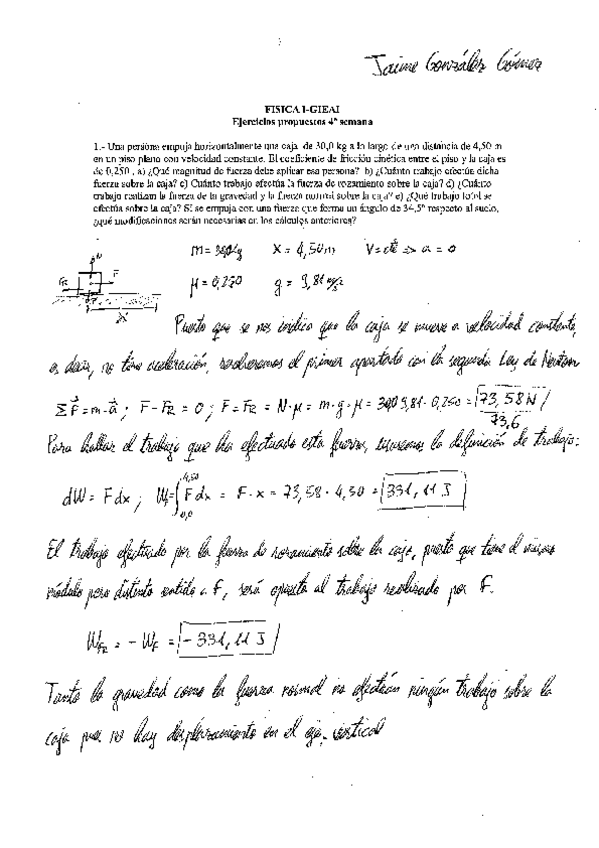 Jaime González Gómez
FISICA I-GIEAI
Ejercicios propuestos 4ª semana
1.- Una persona empuja horizontalmente una caja de 30,0 kg a lo largo de una distancia de 4,50 m
en un piso plano con velocidad constante. El coeficiente de fricción cinética entre el piso y la caja es
de 0,250 . a) ¿Qué magnitud de fuerza debe aplicar esa persona? b) ¿Cuánto trabajo efectúa dicha
fuerza sobre la caja? c) Cuánto trabajo efectúa la fuerza de rozamiento sobre la caja? d) ¿Cuánto
trabajo realizan la fuerza de la gravedad y la fuerza normal sobre la caja? e) ¿Qué trabajo total se
efectúa sobre la caja? Si se empuja con una fuerza que forma un ángulo de 34,5º respecto al suelo,
¿qué modificaciones serán necesarias en los cálculos anteriores?
m = 30,0 kg x = 4,50 m v = cte ⇒ a = 0
μ = 0,250 g = 9,81 m/s²
N
F_R F
P
Δx
Puesto que se nos indica que la caja se mueve a velocidad constante,
es decir, no tiene aceleración, resolveremos el primer apartado con la segunda Ley de Newton
ΣF⃗ = m·a⃗ ; F - F_R = 0 ; F = F_R = N·μ = m·g·μ = 30,0·9,81·0,250 = 73,58 N
73,6
Para hallar el trabajo que ha efectuado esta fuerza, usaremos la definición de trabajo:
dW = F dx ; W_F = ∫_{0,0}^{4,50} F dx = F·x = 73,58·4,50 = 331,11 J
El trabajo efectuado por la fuerza de rozamiento sobre la caja, puesto que tiene el mismo
módulo pero distinto sentido a F, será opuesto al trabajo realizado por F.
W_{FR} = - W_F = - 331,11 J
Tanto la gravedad como la fuerza normal no efectúan ningún trabajo sobre la
caja pues no hay desplazamiento en el eje vertical